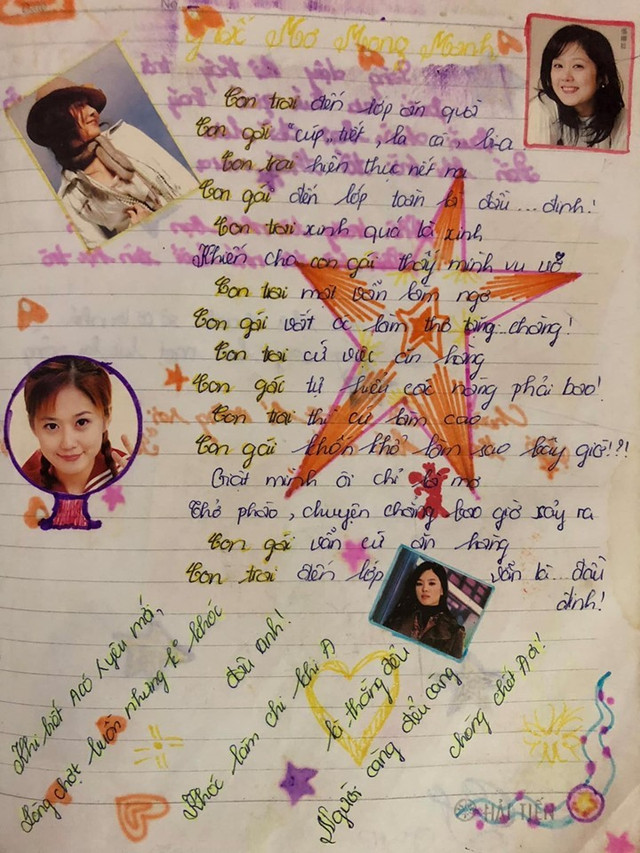 Giấc Mơ Mong Manh
Con trai đến lớp ăn quà
Con gái "cúp" tiết, la cà, bi-a
Con trai hiền thục nết na
Con gái đến lớp toàn là đầu...đinh!
Con trai xinh quá là xinh
Khiến cho con gái thấy mình vu vơ
Con trai mặt vẫn làm ngơ
Con gái vắt óc làm thơ tặng...chàng!
Con trai cứ việc ăn hàng
Con gái tự hiểu các nàng phải bao!
Con trai thì cứ làm cao
Con gái khốn khổ làm sao bây giờ!?!
Giật mình ôi chỉ là mơ
Thở phào, chuyện chẳng bao giờ xảy ra
Con gái vẫn cứ ăn hàng
Con trai đến lớp vẫn là...đầu
đinh!
Khi biết A có người yêu mới,
Lòng chợt buồn nhưng k° khóc
đâu anh!
Khóc làm chi khi A
là thằng đểu
Người càng đểu càng
chóng chết A ơi!
HẢI TIẾN